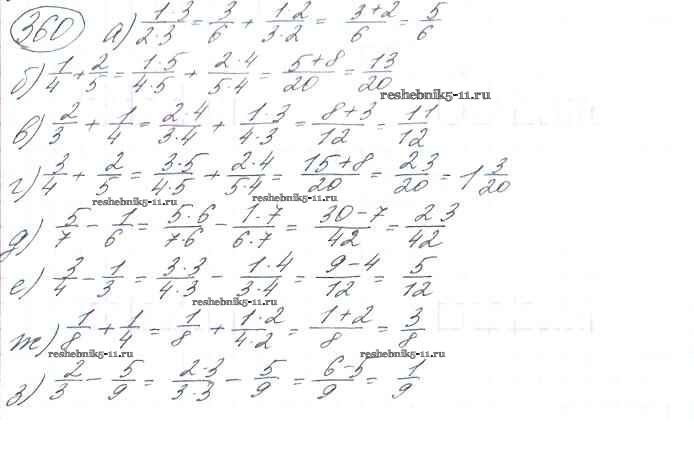 360 а) 1·3/2·3 = 3/6 + 1·2/3·2 = 3+2/6 = 5/6
б) 1/4 + 2/5 = 1·5/4·5 + 2·4/5·4 = 5+8/20 = 13/20
reshebnik5-11.ru
в) 2/3 + 1/4 = 2·4/3·4 + 1·3/4·3 = 8+3/12 = 11/12
г) 3/4 + 2/5 = 3·5/4·5 + 2·4/5·4 = 15+8/20 = 23/20 = 1 3/20
reshebnik5-11.ru reshebnik5-11.ru
д) 5/7 - 1/6 = 5·6/7·6 - 1·7/6·7 = 30-7/42 = 23/42
е) 3/4 - 1/3 = 3·3/4·3 - 1·4/3·4 = 9-4/12 = 5/12
reshebnik5-11.ru
ж) 1/8 + 1/4 = 1/8 + 1·2/4·2 = 1+2/8 = 3/8
reshebnik5-11.ru reshebnik5-11.ru
з) 2/3 - 5/9 = 2·3/3·3 - 5/9 = 6-5/9 = 1/9